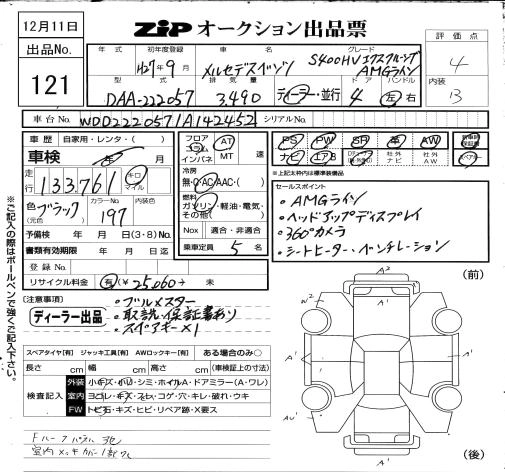 12月11日
ZiP オークション出品票
評価点
4
内装
B
出品No.
121
年式
初年度登録
H27年9月
車名
メルセデスベンツ
グレード
S400HVエクスクルーシブ
AMGライン
型式
DAA-222057
排気量
3,490
ディーラー・並行
ドア
4
ハンドル
左 右
車台No.
WDD2220571A142452
シリアルNo.
車歴
自家用・レンタ・( )
車検
年 月
走行
133,761
キロ
マイル
色
(元色)
ブラック
カラーNo.
197
内装色
予備検 年 月 日(3・8)No.
書類有効期限 年 月 日
登録No.
リサイクル料金
有(¥25,060)→ 未
フロア
コラム
インパネ
AT
MT
速
冷房
無・C・AC・AAC・( )
燃料
ガソリン・軽油・電気・
その他( )
Nox
適合・非適合
乗車定員
5名
PS
PW
SR
革
AW
ナビ
エアB
社外
ナビ
社外
AW
※上記太枠内は標準装備品
セールスポイント
・AMGライン
・ヘッドアップディスプレイ
・360°カメラ
・シートヒーター・ベンチレーション
(注意事項)
ディーラー出品
・フルメスター
・取説・保証書あり
・スペアキー×1
※ご記入の際はボールペンで強くご記入下さい。
スペアタイヤ[有] ジャッキ工具[有] AWロックキー[有] ある場合のみ○
長さ cm 幅 cm 高さ cm (車検証上の寸法)
検査記入
外装
小キズ・小U・シミ・ホイルA・ドアミラー(A・ワレ)
室内
ヨゴレ・キズ・スレ・コゲ・穴・キレ・破れ・ウキ
FW
トビ石・キズ・ヒビ・リペア跡・X要ス
(前)
(後)
A2
W2
A1
A1
A1
A1